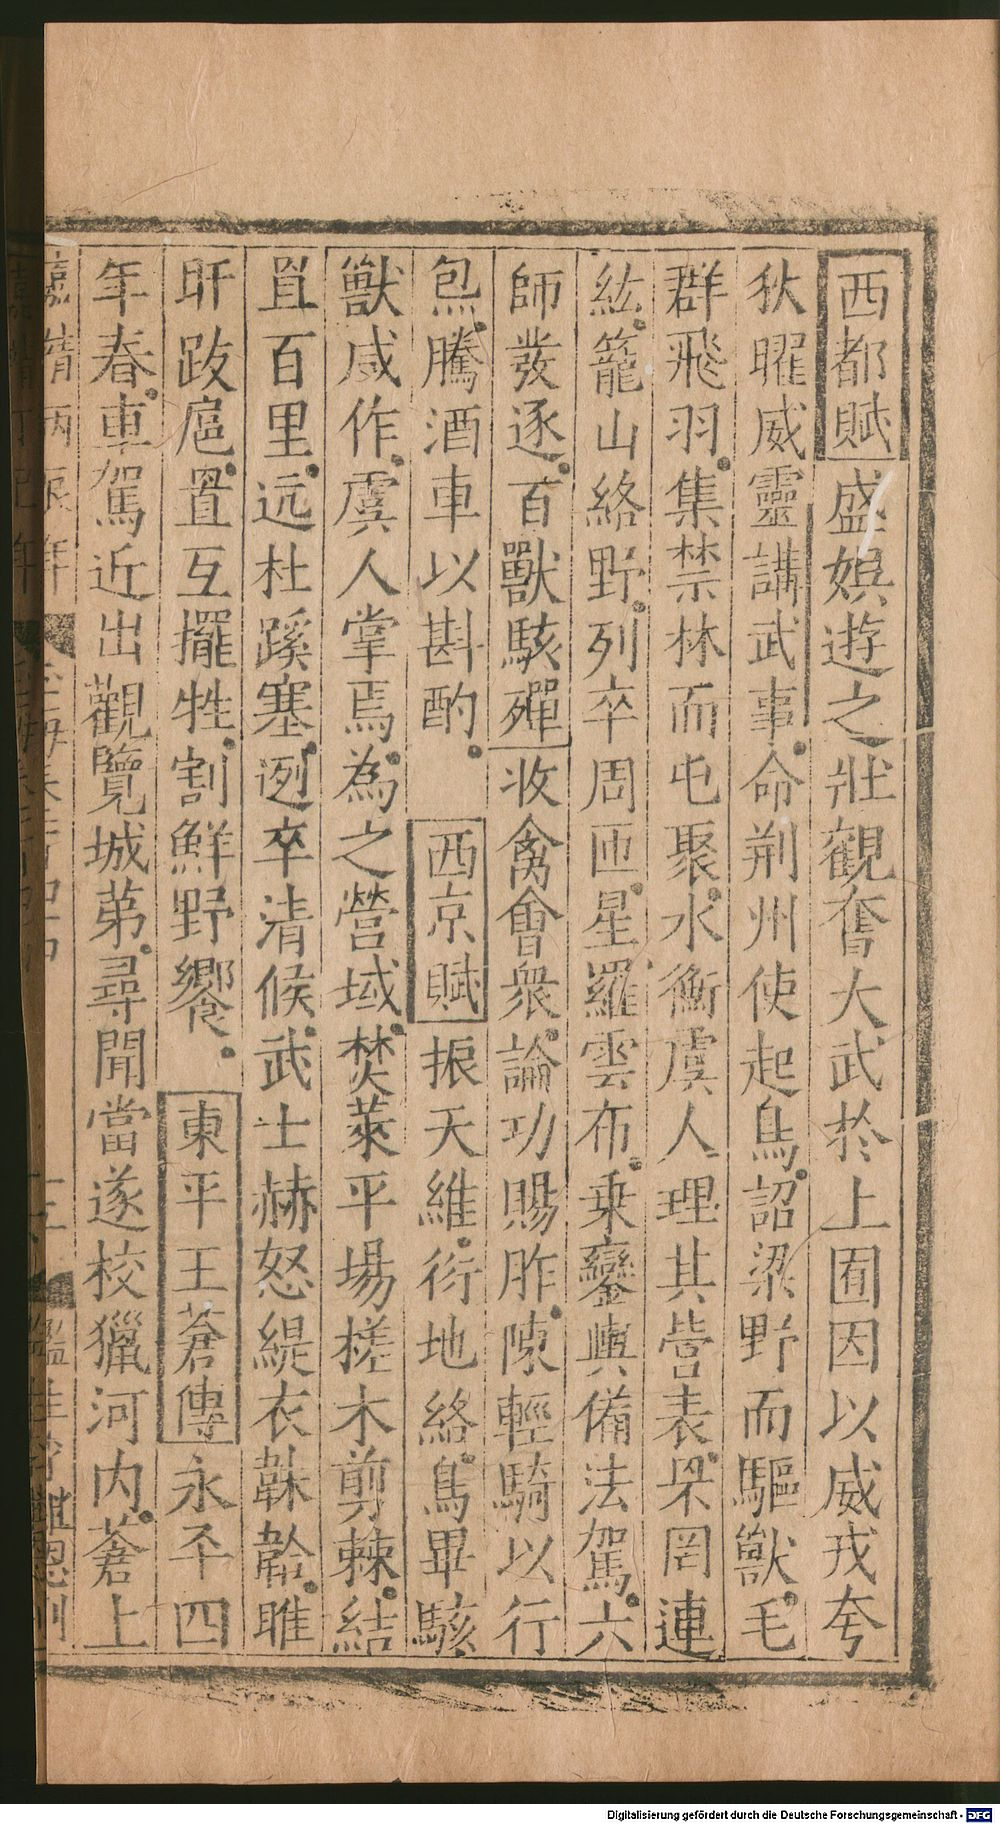 西都賦盛娛遊之壯觀奮大武於上囿因以威戎夸
狄曜威靈講武事命荆州使起鳥詔梁野而驅獸毛
群飛羽集禁林而屯聚水衡虞人理其營表罘罔連
紘籠山絡野列卒周匝星羅雲布乗鑾輿備法駕六
師發逐百獸駭殫收禽會衆論功賜胙陳輕騎以行
炰騰酒車以斟酌西京賦振天維衍地絡鳥畢駭
獸咸作虞人掌焉為之營域焚萊平場槎木剪棘結
罝百里远杜蹊塞迾卒清候武士赫怒緹衣韎韐睢
盱跋扈置互擺牲割鮮野饗東平王蒼傳永平四
年春車駕近出觀覽城苐尋聞當遂校獵河内蒼上
Digitalisierung gefördert durch die Deutsche Forschungsgemeinschaft - DFG